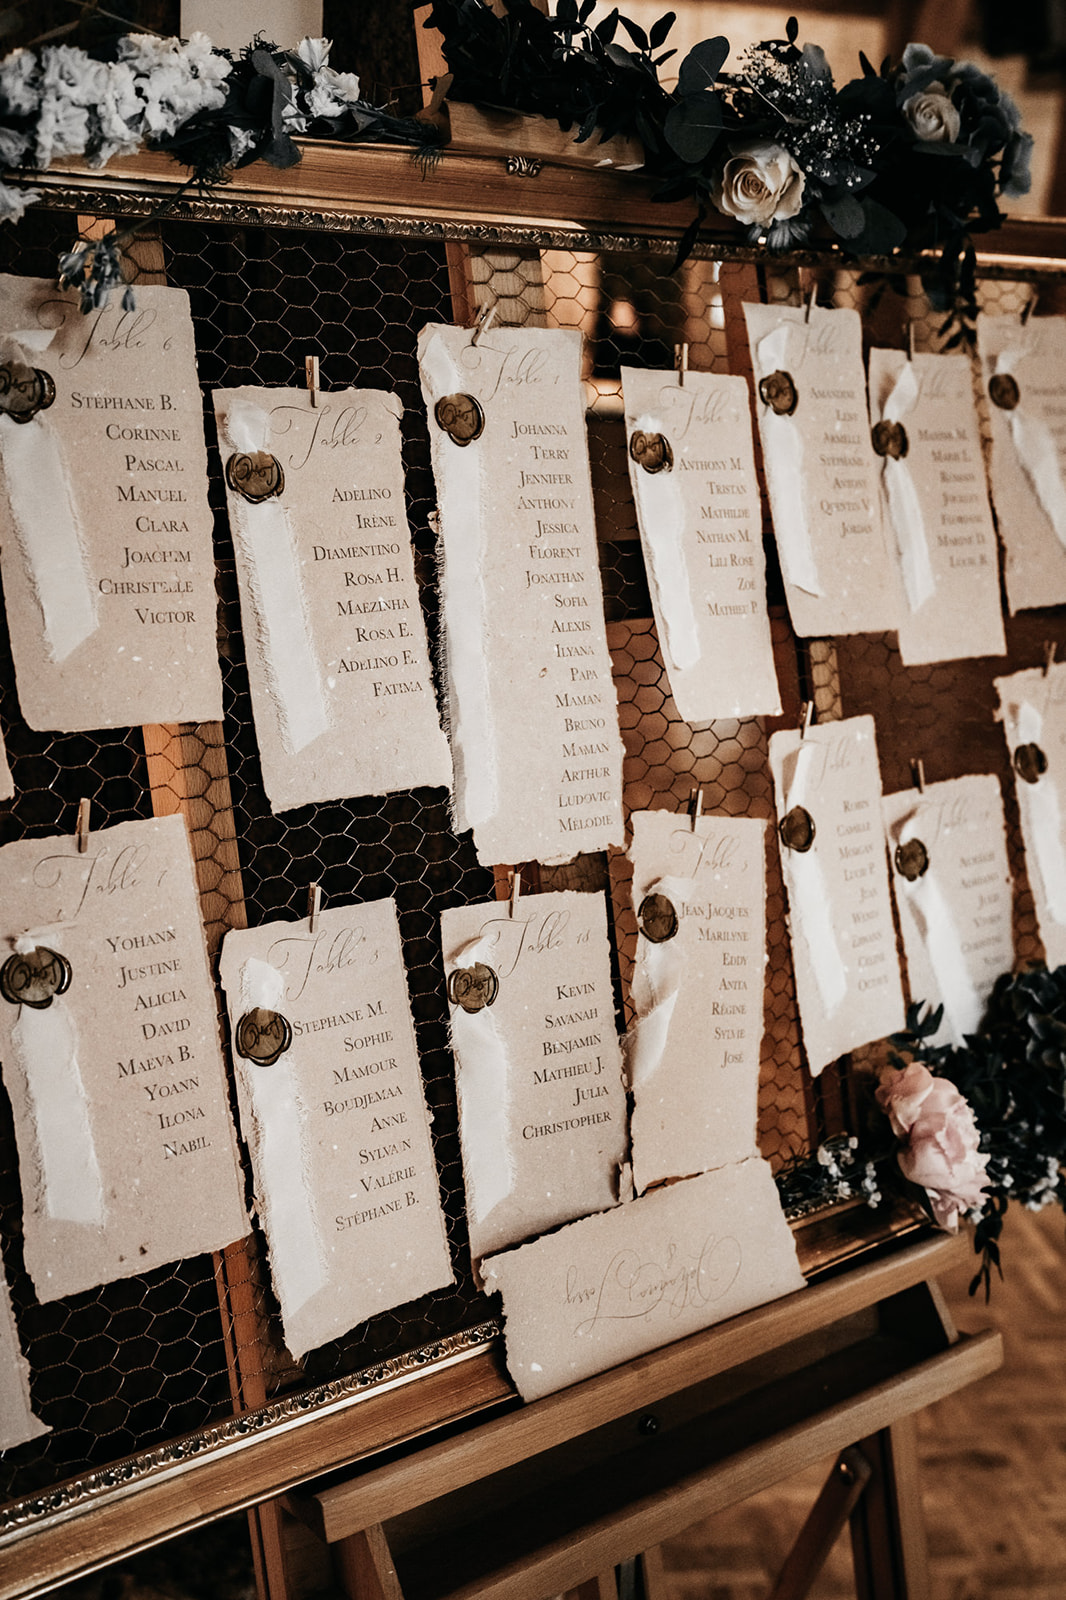 Table 6
STÉPHANE B.
CORINNE
PASCAL
MANUEL
CLARA
JOACHIM
CHRISTELLE
VICTOR
Table 2
ADELINO
IRÈNE
DIAMENTINO
ROSA H.
MAEZINHA
ROSA E.
ADELINO E.
FATIMA
Table 1
JOHANNA
TERRY
JENNIFER
ANTHONY
JESSICA
FLORENT
JONATHAN
SOFIA
ALEXIS
ILYANA
PAPA
MAMAN
BRUNO
MAMAN
ARTHUR
LUDOVIC
MÉLODIE
Table
ANTHONY M.
TRISTAN
MATHILDE
NATHAN M.
LILI ROSE
ZOÉ
MATHIEU P.
Table
AMANDINE
ARMELLE
STÉPHANE
ANTONY
QUENTIN V.
JORDAN
MARINE D.
Table 7
YOHANN
JUSTINE
ALICIA
DAVID
MAEVA B.
YOANN
ILONA
NABIL
Table 8
STEPHANE M.
SOPHIE
MAMOUR
BOUDJEMAA
ANNE
SYLVAIN
VALÉRIE
STÉPHANE B.
Table 13
KEVIN
SAVANAH
BENJAMIN
MATHIEU J.
JULIA
CHRISTOPHER
Table 5
JEAN JACQUES
MARILYNE
EDDY
ANITA
RÉGINE
SYLVIE
JOSÉ
Table
ROBIN
CAMILLE
MORGAN
LUCIE P.
JEAN
CÉLINE
Johanna Terry